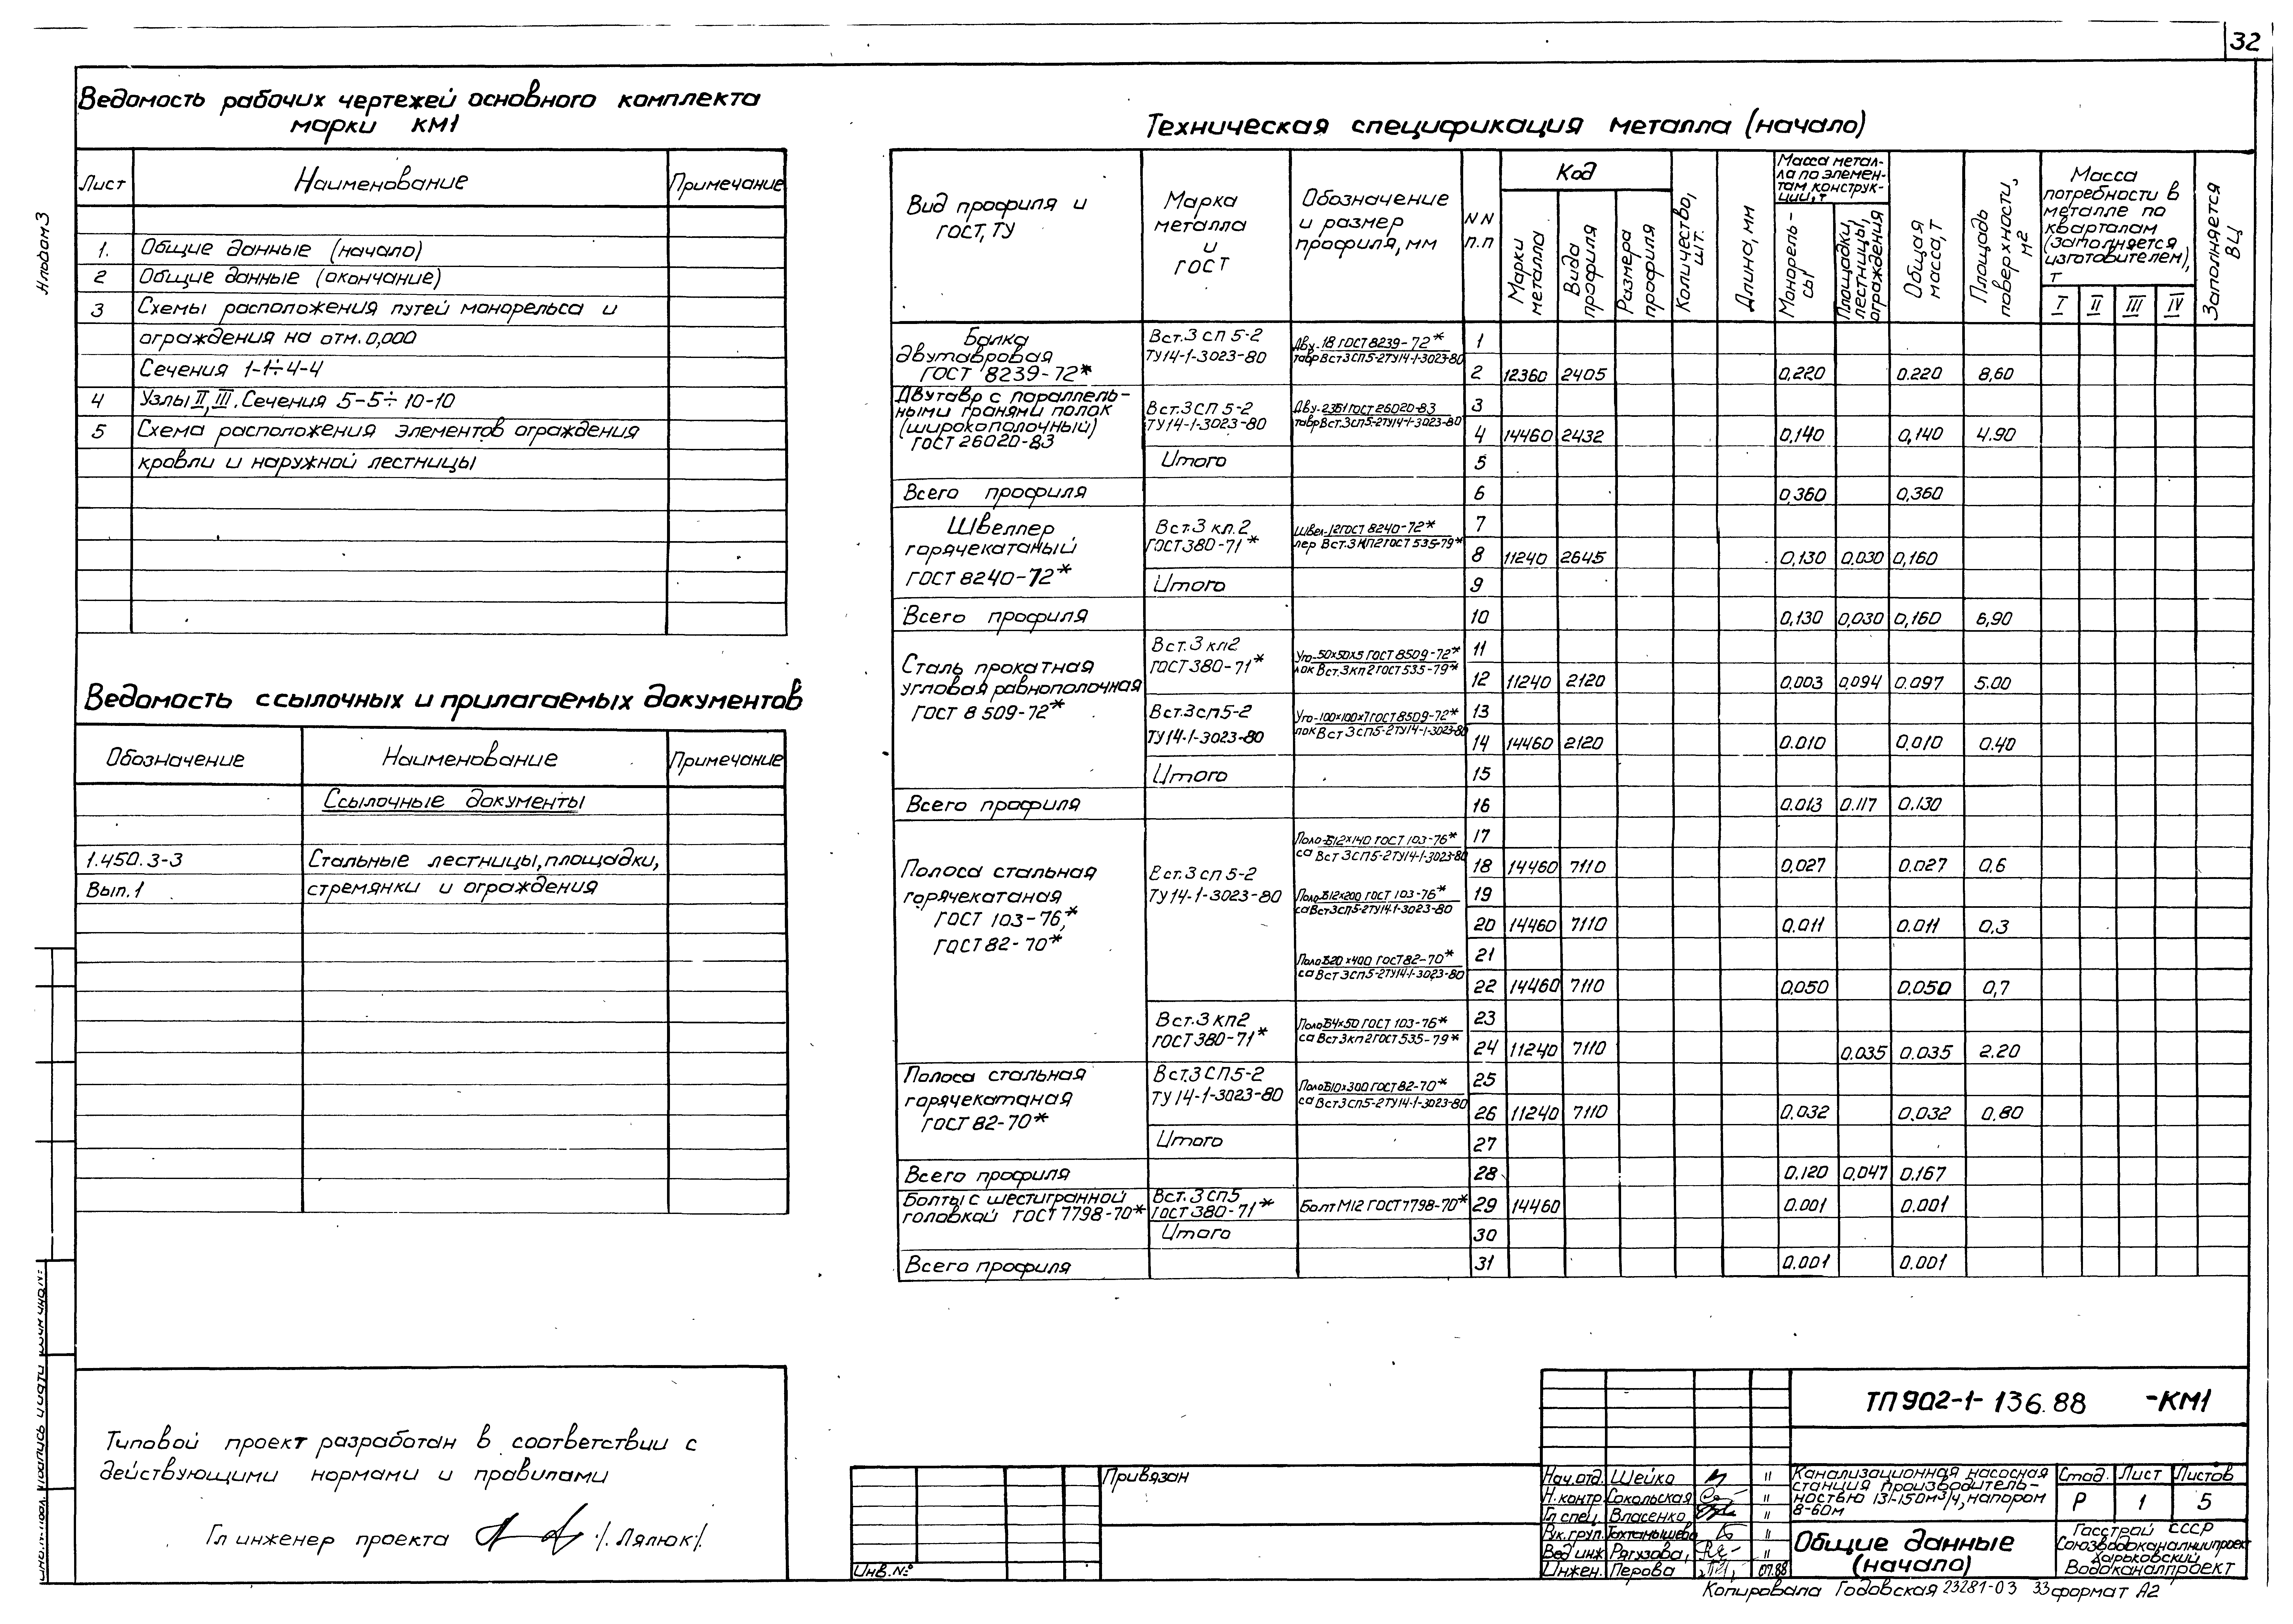 32
Альбом 3
Ведомость рабочих чертежей основного комплекта
марки КМ1
Лист Наименование Примечание
1. Общие данные (начало)
2 Общие данные (окончание)
3 Схемы расположения путей монорельса и
ограждения на отм. 0,000
Сечения 1-1÷4-4
4 Узлы II, III. Сечения 5-5÷10-10
5 Схема расположения элементов ограждения
кровли и наружной лестницы
Ведомость ссылочных и прилагаемых документов
Обозначение Наименование Примечание
Ссылочные документы
1.450.3-3 Стальные лестницы, площадки,
Вып.1 стремянки и ограждения
Типовой проект разработан в соответствии с
действующими нормами и правилами
Гл инженер проекта /. Лялюк/.
Техническая спецификация металла (начало)
Вид профиля и
ГОСТ, ТУ
Марка
металла
и
ГОСТ
Обозначение
и размер
профиля, мм
NN
п.п
Код
Марки
металла
Вида
профиля
Размера
профиля
Количество,
шт.
Длина, мм
Масса метал-
ла по элемен-
там конструк-
ции, т
Монорель-
сы
Площадки,
лестницы,
ограждения
Общая
масса, т
Площадь
поверхности,
м2
Масса
потребности в
металле по
кварталам
(заполняется
изготовителем),
т
I II III IV
Заполняется
ВЦ
Балка
двутавровая
ГОСТ 8239-72*
Вст.3 сп 5-2
ТУ14-1-3023-80
Дву-18 ГОСТ 8239-72*
тавр Вст3СП5-2ТУ14-1-3023-80
1
2 12360 2405 0,220 0.220 8,60
Двутавр с параллель-
ными гранями полок
(широкополочный)
ГОСТ 26020-83
Вст.3СП 5-2
ТУ14-1-3023-80
Дву-23Б1 ГОСТ 26020-83
тавр Вст.3сп5-2ТУ14-1-3023-80
3
4 14460 2432 0,140 0,140 4.90
Итого 5
Всего профиля 6 0,360 0,360
Швеллер
горячекатаный
ГОСТ 8240-72*
Вст.3 кп.2
ГОСТ380-71*
Швел-12ГОСТ 8240-72*
лер Вст.3КП2ГОСТ 535-79*
7
8 11240 2645 0,130 0,030 0,160
Итого 9
Всего профиля 10 0,130 0,030 0,160 6,90
Сталь прокатная
угловая равнополочная
ГОСТ 8509-72*
Вст.3 кп2
ГОСТ380-71*
Уго-50х50х5 ГОСТ 8509-72*
лок Вст.3кп2ГОСТ535-79*
11
12 11240 2120 0.003 0,094 0.097 5.00
Вст.3сп5-2
ТУ14-1-3023-80
Уго-100х100х7ГОСТ8509-72*
лок Вст3сп5-2ТУ14-1-3023-80
13
14 14460 2120 0.010 0,010 0.40
Итого 15
Всего профиля 16 0.013 0.117 0.130
Полоса стальная
горячекатаная
ГОСТ 103-76*,
ГОСТ82-70*
Вст.3 сп 5-2
ТУ14-1-3023-80
Поло-Б12х140 ГОСТ 103-76*
са Вст3СП5-2ТУ14-1-3023-80
17
18 14460 7110 0,027 0.027 0.6
Поло-Б12х200 ГОСТ 103-76*
са Вст3СП5-2ТУ14-1-3023-80
19
20 14460 7110 0.011 0.011 0,3
Поло-Б20х400 ГОСТ82-70*
са Вст3СП5-2ТУ14-1-3023-80
21
22 14460 7110 0,050 0,050 0,7
Вст.3 кп2
ГОСТ380-71*
Поло-Б4х50 ГОСТ 103-76*
са Вст3кп2ГОСТ535-79*
23
24 11240 7110 0.035 0.035 2.20
Полоса стальная
горячекатаная
ГОСТ 82-70*
Вст.3 СП5-2
ТУ14-1-3023-80
Поло-Б10х300 ГОСТ82-70*
са Вст3сп5-2ТУ14-1-3023-80
25
26 11240 7110 0.032 0.032 0.80
Итого 27
Всего профиля 28 0.120 0,047 0.167
Болты с шестигранной
головкой ГОСТ7798-70*
Вст.3сп5
ГОСТ380-71*
Болт М12 ГОСТ7798-70*
29 14460 0.001 0.001
Итого 30
Всего профиля 31 0.001 0.001
Привязан
Инв.№
ТП 902-1-136.88 -КМ1
Нач.отд. Шейко "
Н.контр. Сокольская "
Гл спец. Власенко "
Рук.груп. Тохтамышева "
Вед инж Рягузова, "
Инжен. Перова 07.88
Канализационная насосная
станция производитель-
ностью 131-150м³/ч, напором
8-60м
Стад. Лист Листов
Р 1 5
Общие данные
(начало)
Госстрой СССР
Союзводоканалниипроект
Харьковский
Водоканалпроект
Копировала Годовская 23281-03 33 формат А2